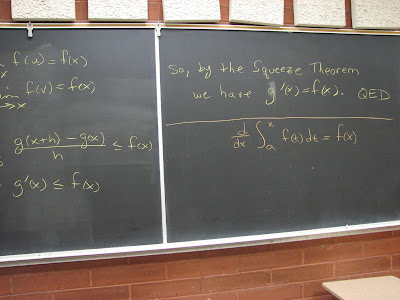 f(u) = f(x)
x
im f(v) = f(x)
→x
g(x+h) - g(x)
h
≤ f(x)
g'(x) ≤ f(x)
So, by the Squeeze Theorem
we have g'(x) = f(x). QED
d/dx ∫_a^x f(t) dt = f(x)